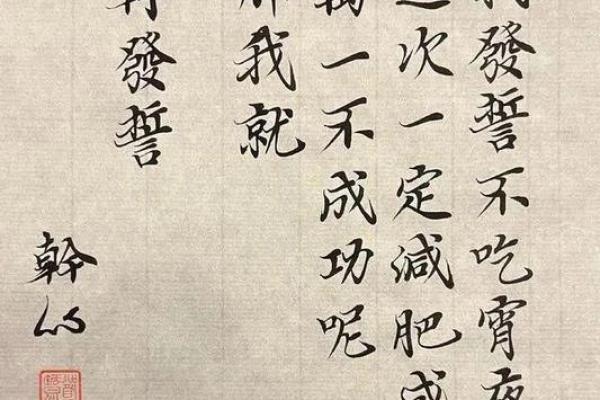 我發誓不吃宵夜
這次一定減肥成
萬一不成功呢
那我就
再發誓
幹